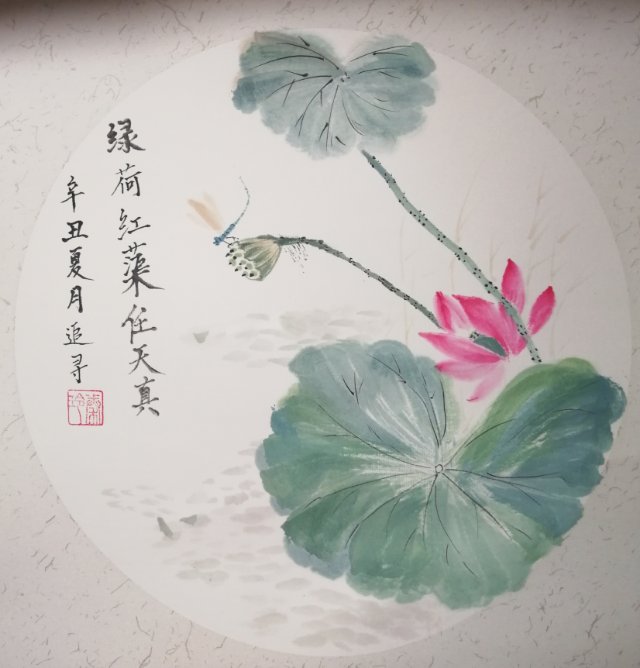 绿荷红蕖任天真
辛丑夏月追寻